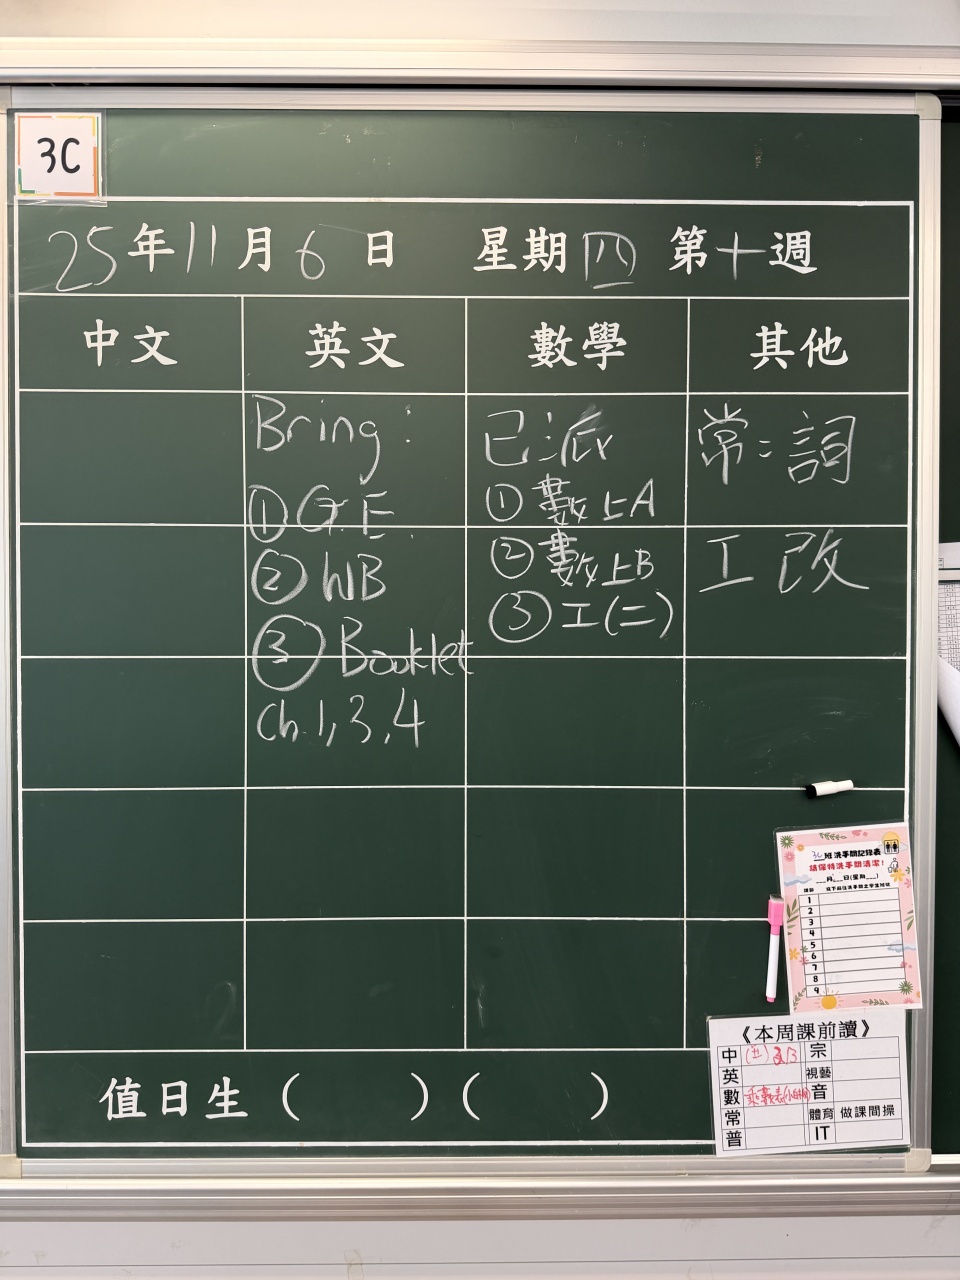 3C
25年11月6日 星期四 第十週
中文 英文 數學 其他
Bring:
① G.E.
② WB
③ Booklet
Ch.1,3,4
已派
① 數上A
② 數上B
③ 工(二)
常:詞
工 改
3C班洗手間記錄表
請保持洗手間清潔!
___月___日(星期___)
1
2
3
4
5
6
7
8
9
《本周課前讀》
中 宗
英 視藝
數 乘數表 音
常 體育 做課間操
普 IT
值日生 ( ) ( )